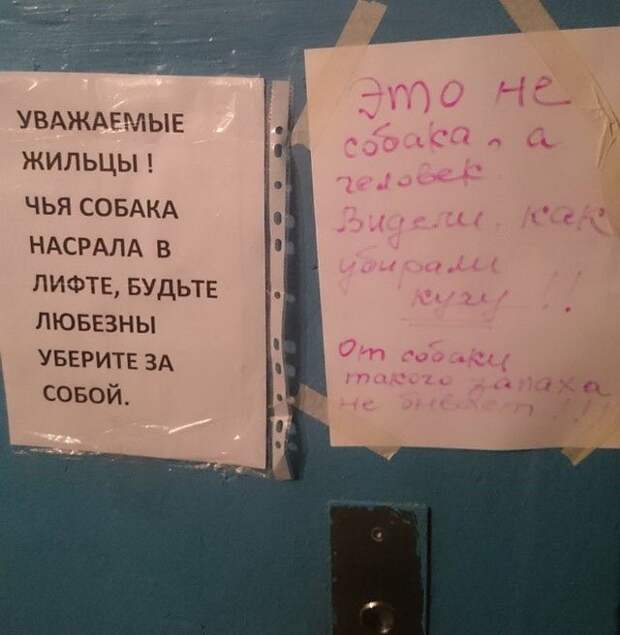 УВАЖАЕМЫЕ
ЖИЛЬЦЫ !
ЧЬЯ СОБАКА
НАСРАЛА В
ЛИФТЕ, БУДЬТЕ
ЛЮБЕЗНЫ
УБЕРИТЕ ЗА
СОБОЙ.
Это не
собака, а
человек.
Видели, как
убирали
кучу !!
От собаки
такого запаха
не бывает !!!